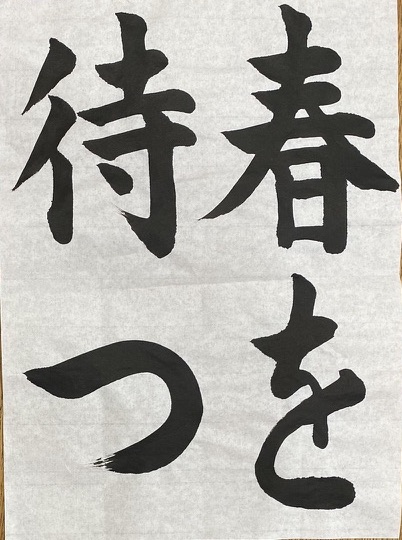 春を
待つ